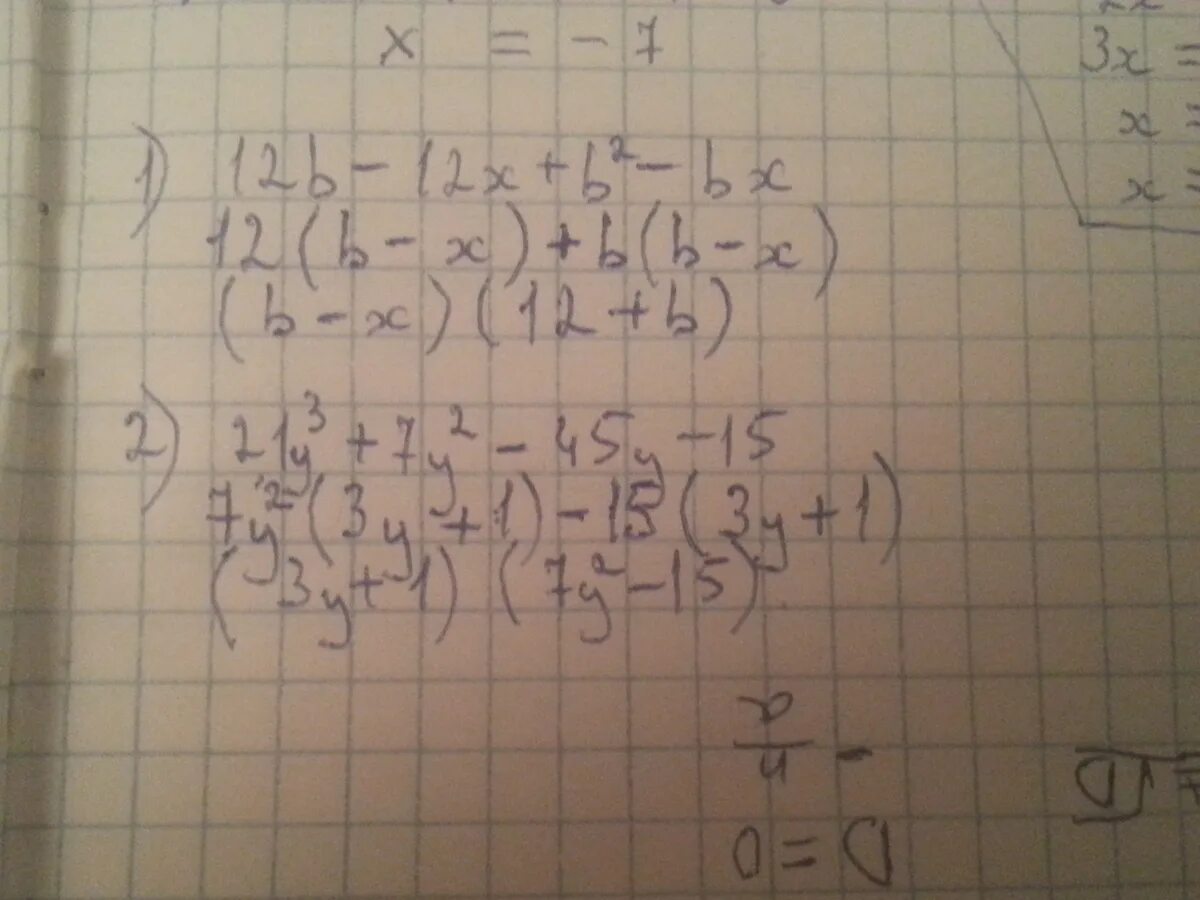 x = - 7
2x
3x =
x =
x =
1) 12b - 12x + b² - bx
12 (b - x) + b (b - x)
(b - x) (12 + b)
2) 21y³ + 7y² - 45y - 15
7y² (3y + 1) - 15 (3y + 1)
(3y + 1) (7y² - 15)
D = 0